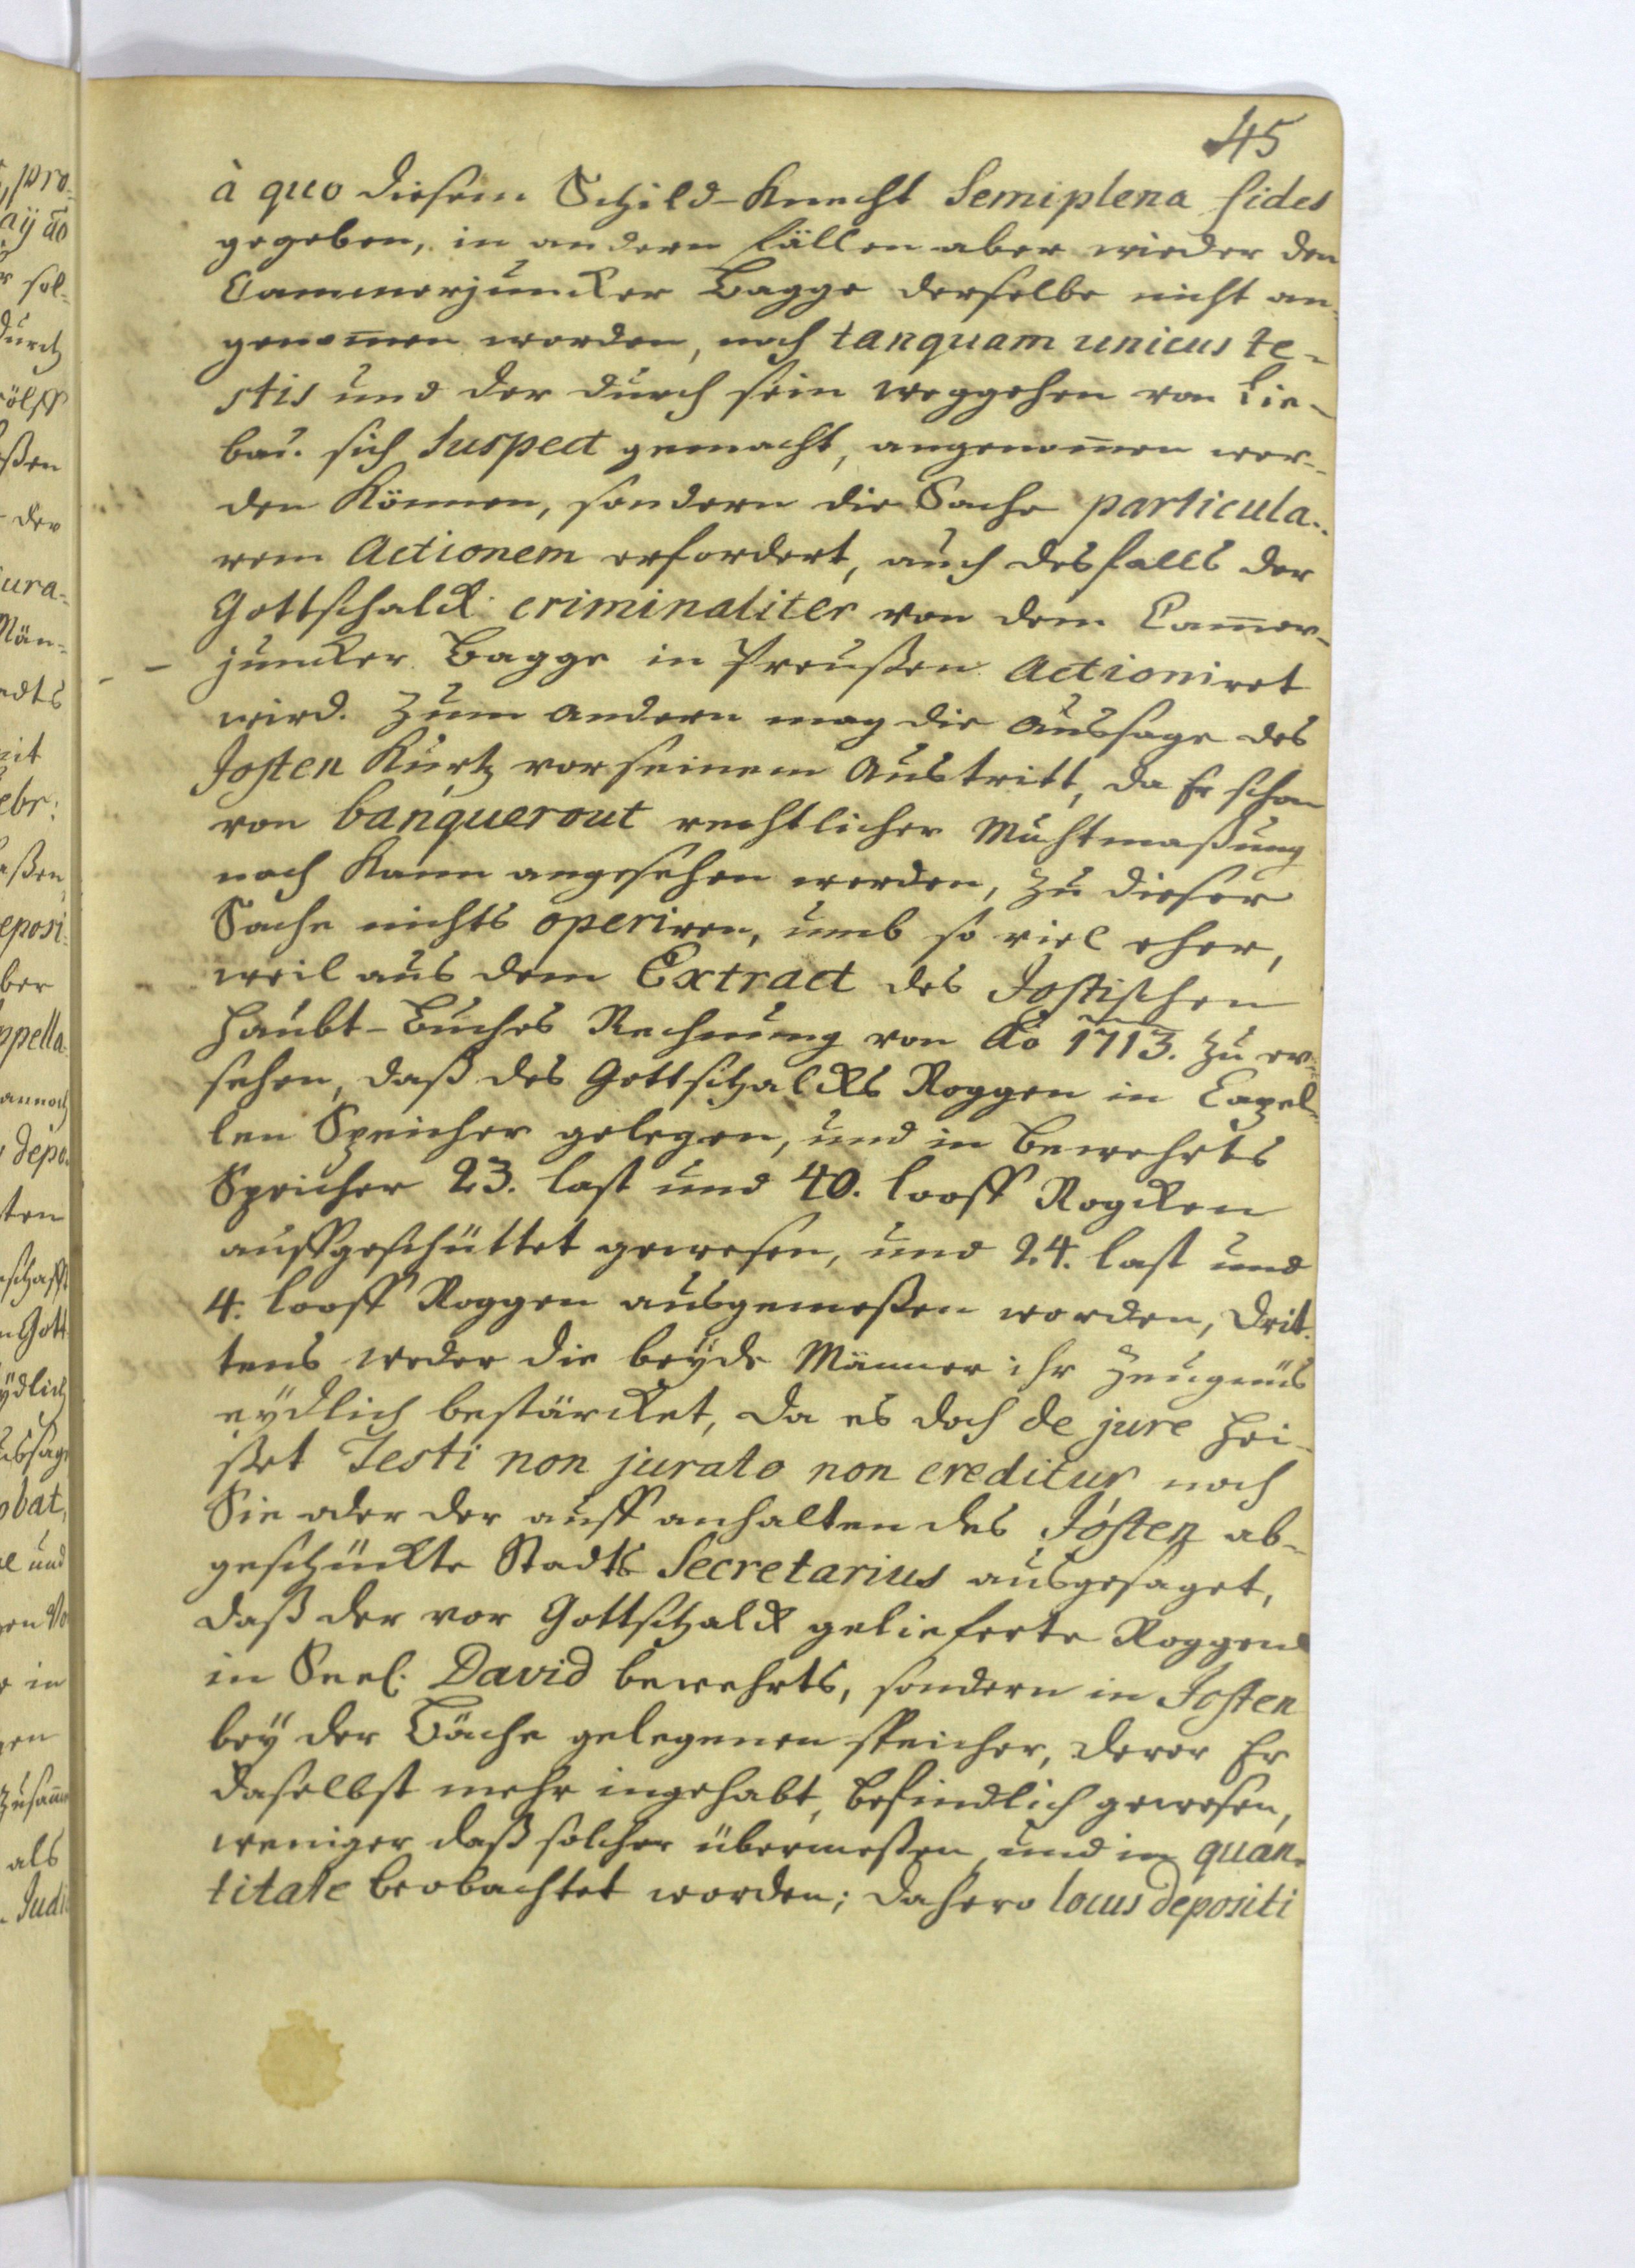 45
à quo diesem Schild-Knecht Semiplena fides
gegeben, in andern fällen aber wieder den
Cammerjuncker Bagge derselbe nicht an-
genom̄en worden, noch tanquam unicus te-
stis und der durch sein weggehen von Lie-
bau sich Suspect gemacht, angenom̄en wer-
den können, sondern die Sache particula-
rem Actionem erfordert, auch desfalls der
Gottschalck criminaliter von dem Cam̄er-
juncker Bagge in Preußen Actioniret
wird. Zum andern mag die Aussage des
Josten kurtz vor seinem Austritt, da Er schon
von banquerout rechtlicher Muhtmaßung
nach kann angesehen werden, zu dieser
Sache nichts operiren, umb so viel eher,
weil aus dem Extract des Jostischen
Haubt-Buches Rechnung von Ao 1713. zu er-
sehen, daß des Gottschalcks Roggen in Capel-
len Speicher gelegen, und in Bewehrts
Speicher 23. last und 40. looff Rogcken
auffgeschüttet gewesen, und 24. last und
4. looff Roggen ausgemeßen worden, Drit-
tens weder die beyde Männer ihr Zeugnüs
eydlich bestärcket, da es doch de jure hei-
ßet Testi non jurato non creditur noch
Sie oder der auff anhalten des Josten ab-
geschückte Stadts Secretarius ausgesaget,
daß der vor Gottschalck gelieferte Roggen
in Seel. David bewehrts, sondern in Josten
bey der Bäche gelegenen speicher, derer Er
daselbst mehr ingehabt, befindlich gewesen,
weniger daß solcher übermeßen, und in quan-
titate beobachtet worden; dahero locus depositi